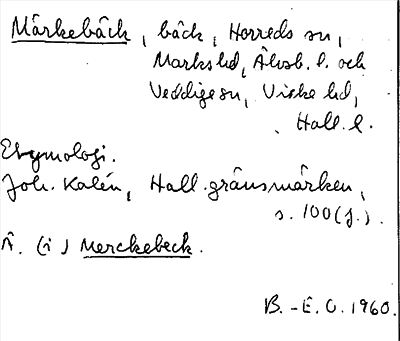 Märkebäck, bäck, Horreds sn,
Marks hd, Älvsb. l. och
Veddige sn, Viske hd,
Hall. l.
Etymologi.
Joh. Kalén, Hall. gränsmärken,
s. 100 (f.).
Å. (i) Merckebeck.
B.-E. O. 1960.